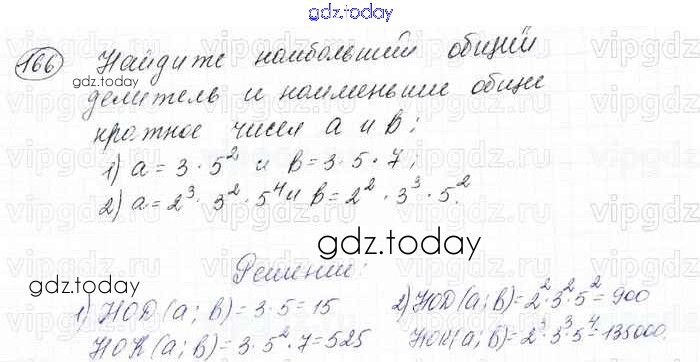 gdz.today
166 Найдите наибольший общий
gdz.today
делитель и наименьшие общие
кратное чисел a и b;
1) a = 3 · 5² и b = 3 · 5 · 7;
2) a = 2³ · 3² · 5⁴ и b = 2² · 3³ · 5².
gdz.today
Решение:
gdz.today
1) НОД (a; b) = 3 · 5 = 15
НОК (a; b) = 3 · 5² · 7 = 525
2) НОД (a; b) = 2² · 3² · 5² = 900
НОК (a; b) = 2³ · 3³ · 5⁴ = 135000.
vipgdz.ru